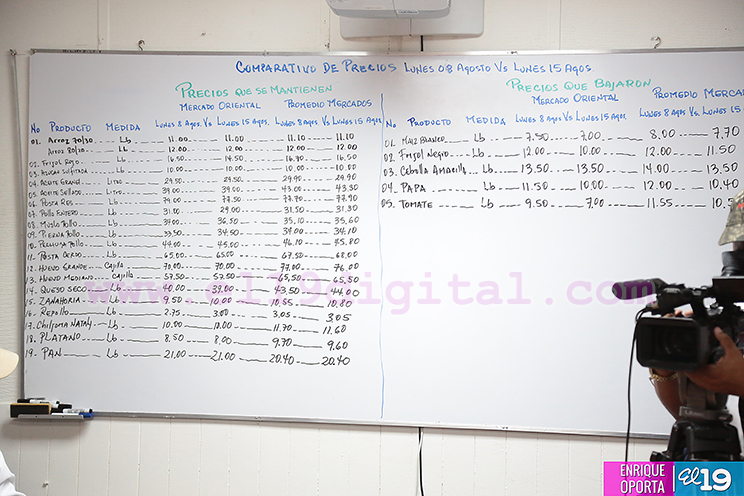 COMPARATIVO DE PRECIOS LUNES 08 AGOSTO VS LUNES 15 AGOS.
PRECIOS QUE SE MANTIENEN
MERCADO ORIENTAL PROMEDIO MERCADOS
No PRODUCTO MEDIDA LUNES 8 AGOS. VS LUNES 15 AGOS. LUNES 8 AGOS. VS LUNES 15 AGOS.
01. ARROZ 70/30 Lb 11.00 11.00 11.10 11.10
ARROZ 80/20 Lb 12.00 12.00 12.00 12.00
02. FRIJOL ROJO Lb 16.50 14.50 16.50
03. AZUCAR SULFITADA Lb 10.00 10.00 10.00 10.00
04. ACEITE GRANEL LITRO 29.50 29.50 29.90 29.90
05. ACEITE SELLADO LITRO 39.00 39.00 43.00 43.30
06. POSTA RES Lb 79.00 77.50 77.70 77.90
07. POLLO ENTERO Lb 31.00 29.00 31.50 31.30
08. MUSLO POLLO Lb 37.00 36.50 35.10 35.60
09. PIERNA POLLO Lb 33.50 34.50 34.00 34.10
10. PECHUGA POLLO Lb 44.00 45.00 46.10 45.80
11. POSTA CERDO Lb 65.00 65.00 67.50 68.00
12. HUEVO GRANDE CAJILLA 70.00 70.00 77.00 76.00
13. HUEVO MEDIANO CAJILLA 57.50 57.50 65.50 65.50
14. QUESO SECO Lb 40.00 39.00 43.50 44.00
15. ZANAHORIA Lb 9.50 10.00 10.55 10.80
16. REPOLLO Lb 2.75 3.00 3.05 3.05
17. CHILTOMA NATALY Lb 10.00 10.00 11.70 11.60
18. PLATANO Lb 8.50 8.00 9.70 9.60
19. PAN Lb 21.00 21.00 20.40 20.40
PRECIOS QUE BAJARON
MERCADO ORIENTAL PROMEDIO MERCA
No PRODUCTO MEDIDA LUNES 8 AGOS. VS LUNES 15 AGOS. LUNES 8 AGOS. VS LUNES 15 AGOS.
01. MAIZ BLANCO Lb 7.50 7.00 8.00 7.70
02. FRIJOL NEGRO Lb 12.00 10.00 12.00 11.50
03. CEBOLLA AMARILLA Lb 13.50 13.50 14.00 13.50
04. PAPA Lb 11.50 10.00 12.00 10.40
05. TOMATE Lb 9.50 7.00 11.55 10.5
www.el19digital.com
ENRIQUE OPORTA
El 19